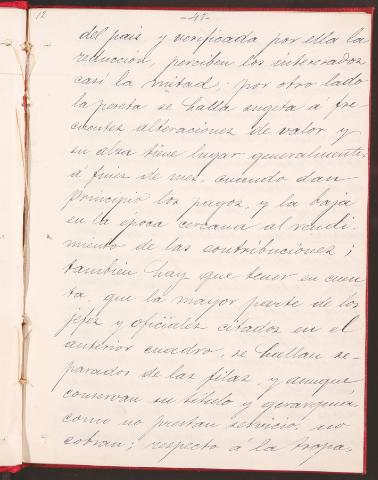 12
-45-
del pais, y verificada por ella la
reducción, perciben los interesados
casi la mitad; por otro lado
la peseta se halla sugeta á fre-
cuentes alteraciones de valor y
su alza tiene lugar generalmente
á fines de mes, cuando dan
principio los pagos, y la baja
en la época cercana al rendi-
miento de las contribuciones;
también hay que tener en cuen-
ta, que la mayor parte de los
jefes y oficiales citados en el
anterior cuadro, se hallan se-
parados de las filas, y aunque
conservan su título y gerarquía,
como no prestan servicio, no
cobran; respecto á la tropa,